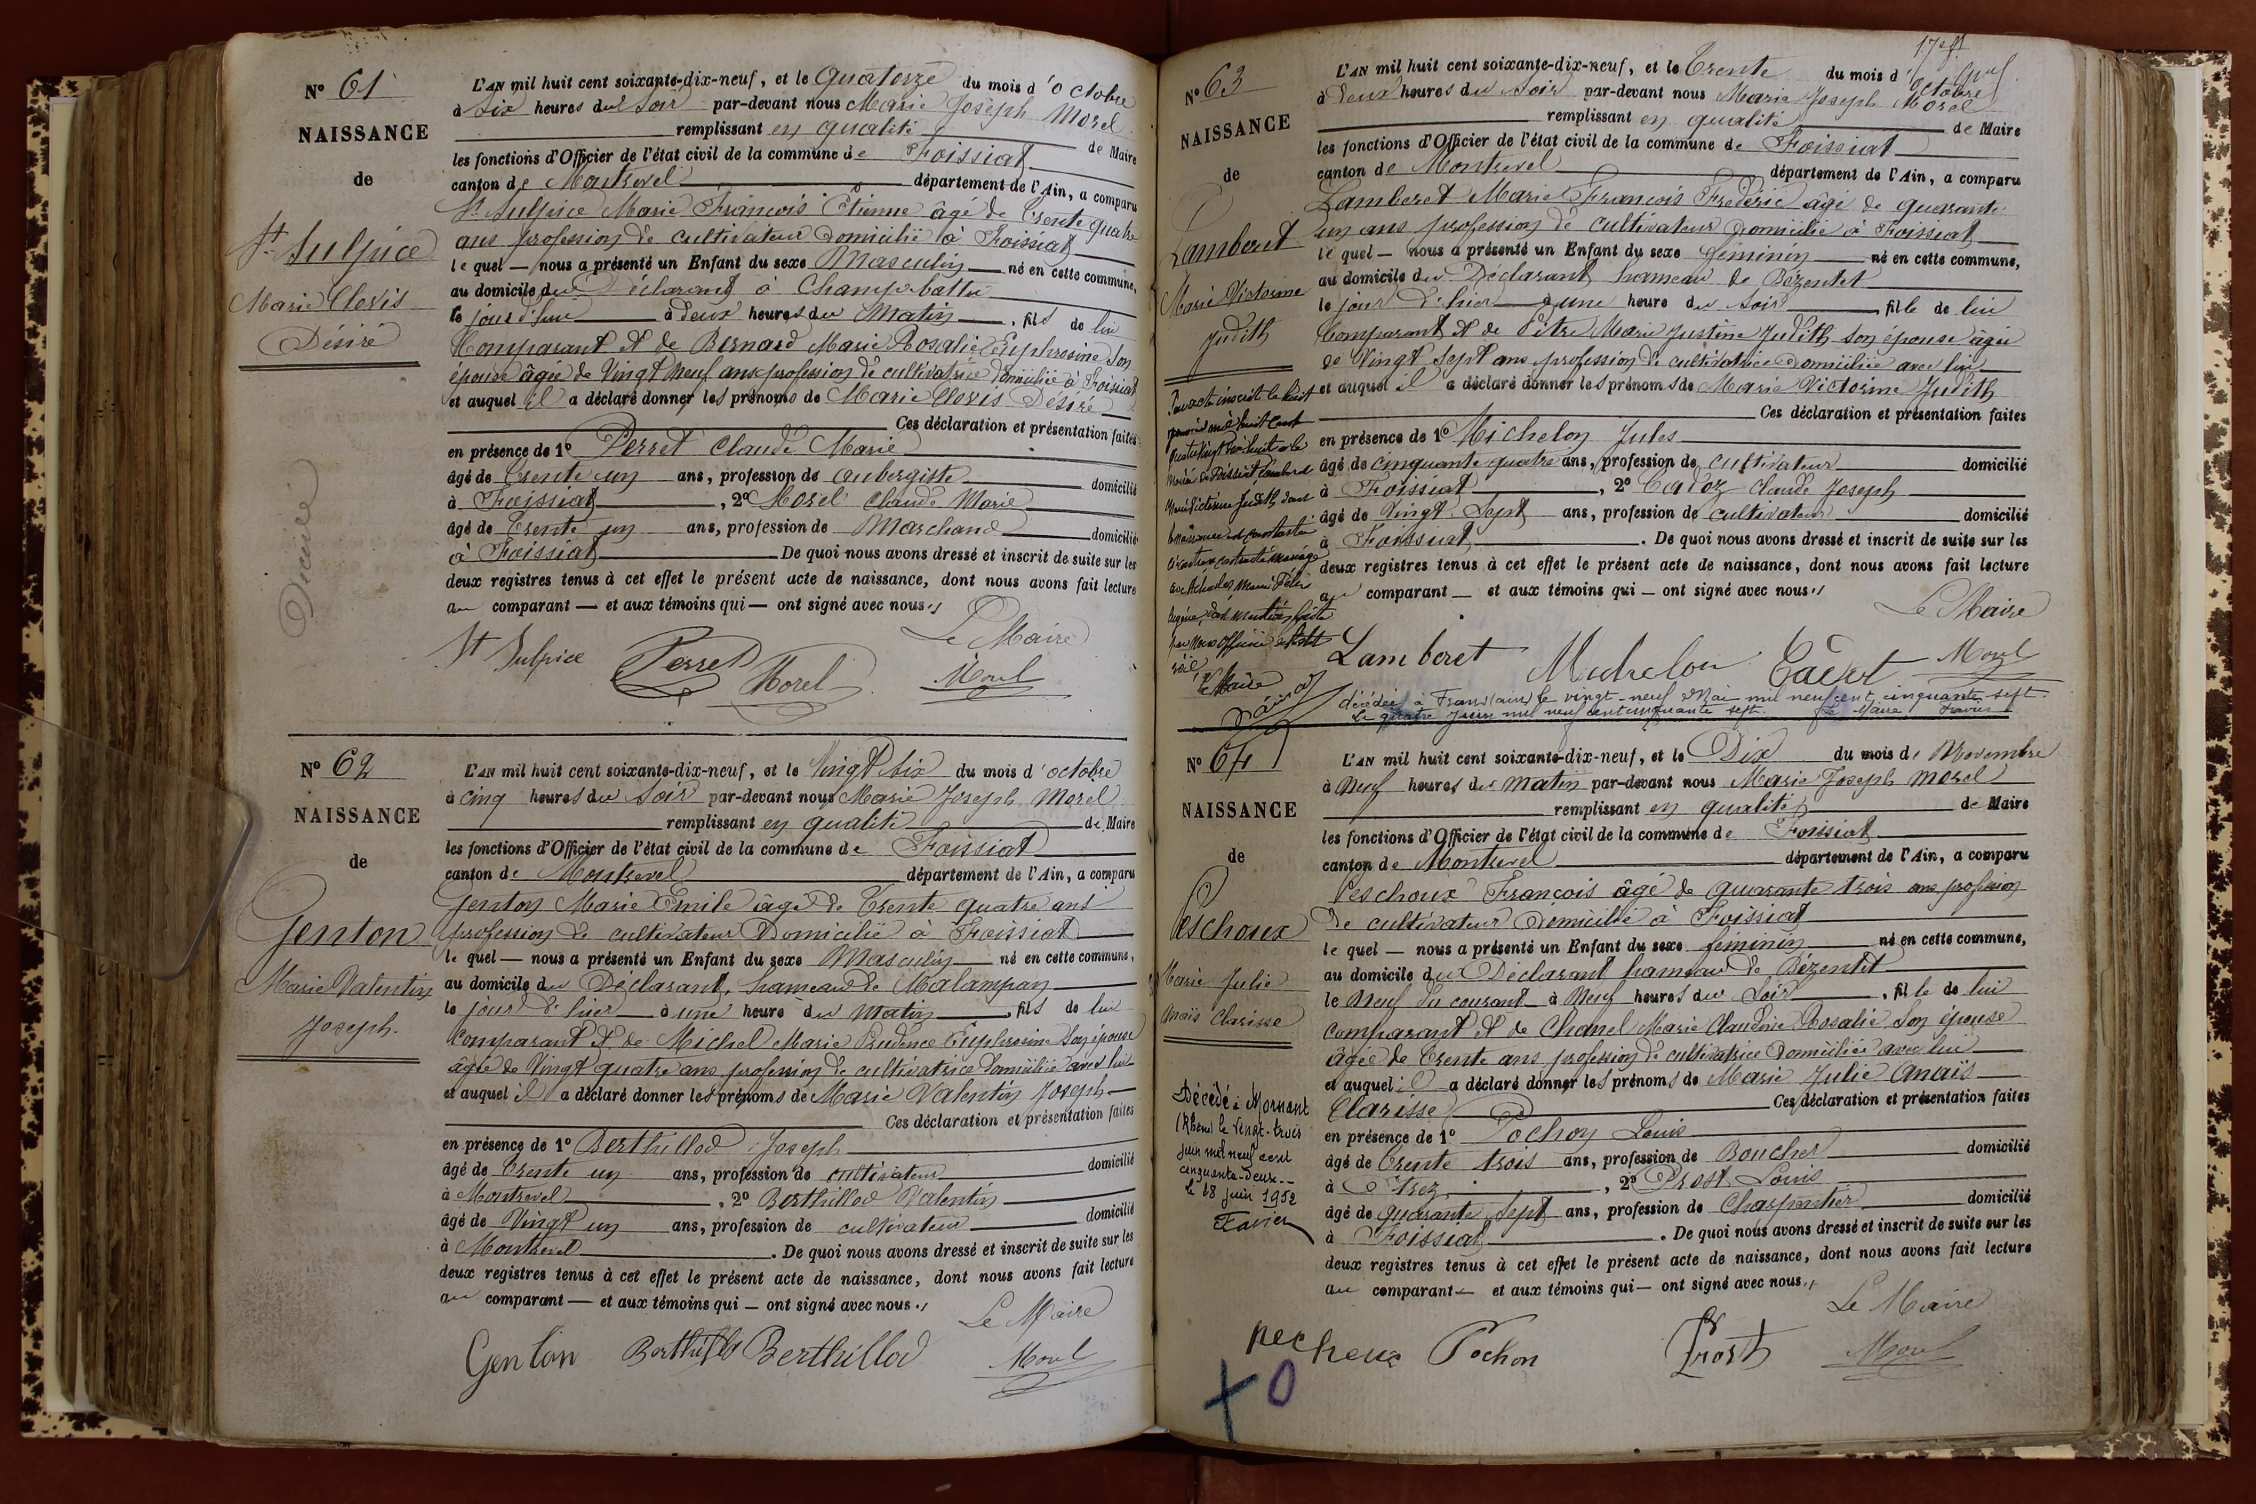 N° 61
NAISSANCE
de
St Sulpice
Marie Clovis
Désiré
L'AN mil huit cent soixante-dix-neuf, et le Quatorze du mois d'octobre
à Six heures du Soir par-devant nous Marie Joseph Morel
remplissant en qualité de Maire
les fonctions d'Officier de l'état civil de la commune de Foissiat
canton de Montrevel département de l'Ain, a comparu
St Sulpice Marie François Etienne âgé de Trente quatre
ans profession de cultivateur Domicilié à Foissiat
lequel — nous a présenté un Enfant du sexe Masculin né en cette commune,
au domicile du Déclarant à Champ-battu
le jour d'hier à deux heures du Matin, fils de lui
Comparant et de Bernard Marie Rosalie Euphrosine Son
épouse âgée de Vingt Neuf ans profession de cultivatrice domiciliée à Foissiat
et auquel il a déclaré donner les prénoms de Marie Clovis Désiré
Ces déclaration et présentation faites
en présence de 1° Perret Claude Marie
âgé de Trente un ans, profession de aubergiste domicilié
à Foissiat, 2° Morel Claude Marie
âgé de Trente un ans, profession de Marchand domicilié
à Foissiat De quoi nous avons dressé et inscrit de suite sur les
deux registres tenus à cet effet le présent acte de naissance, dont nous avons fait lecture
au comparant — et aux témoins qui — ont signé avec nous.
Le Maire
St Sulpice Perret Morel Morel
N° 62
NAISSANCE
de
Genton
Marie Valentin
Joseph.
L'AN mil huit cent soixante-dix-neuf, et le Vingt Six du mois d'octobre
à cinq heures du Soir par-devant nous Marie Joseph Morel
remplissant en qualité de Maire
les fonctions d'Officier de l'état civil de la commune de Foissiat
canton de Montrevel département de l'Ain, a comparu
Genton Marie Emile âgé de Trente quatre ans
profession de cultivateur Domicilié à Foissiat
lequel — nous a présenté un Enfant du sexe Masculin né en cette commune,
au domicile du Déclarant, hameau de Malampan
le jour d'hier à une heure du matin, fils de lui
comparant et de Michel Marie Prudence Euphrosine Son épouse
âgée de Vingt quatre ans profession de cultivatrice domiciliée avec lui
et auquel il a déclaré donner les prénoms de Marie Valentin Joseph
Ces déclaration et présentation faites
en présence de 1° Berthillod Joseph
âgé de Trente un ans, profession de cultivateur domicilié
à Montrevel, 2° Berthillod Valentin
âgé de Vingt un ans, profession de cultivateur domicilié
à Montrevel. De quoi nous avons dressé et inscrit de suite sur les
deux registres tenus à cet effet le présent acte de naissance, dont nous avons fait lecture
au comparant — et aux témoins qui — ont signé avec nous.
Le Maire
Genton Berthillod Berthillod Morel
N° 63
NAISSANCE
de
Lamberet
Marie Victorine
Judith
L'AN mil huit cent soixante-dix-neuf, et le Trente du mois d'octobre
à deux heures du soir par-devant nous Marie Joseph Morel
remplissant en qualité de Maire
les fonctions d'Officier de l'état civil de la commune de Foissiat
canton de Montrevel département de l'Ain, a comparu
Lamberet Marie François Frédéric âgé de quarante
un ans profession de cultivateur Domicilié à Foissiat
lequel — nous a présenté un Enfant du sexe féminin né en cette commune,
au domicile du Déclarant hameau de Bézentet
le jour d'hier à une heure du soir, fille de lui
Comparant et de Pitre Marie Justine Judith son épouse âgée
de Vingt Sept ans profession de cultivatrice domiciliée avec lui
et auquel il a déclaré donner les prénoms de Marie Victorine Judith
Ces déclaration et présentation faites
en présence de 1° Michelon Jules
âgé de cinquante quatre ans, profession de cultivateur domicilié
à Foissiat, 2° Cadoz Claude Joseph
âgé de Vingt Sept ans, profession de cultivateur domicilié
à Foissiat. De quoi nous avons dressé et inscrit de suite sur les
deux registres tenus à cet effet le présent acte de naissance, dont nous avons fait lecture
au comparant — et aux témoins qui — ont signé avec nous.
Le Maire
Lamberet Michelon Morel
décédée à Frans (ain) le vingt-neuf Mai mil neuf cent cinquante sept.
Le quatre Juin mil neuf cent cinquante sept. Le Maire Favier
N° 64
NAISSANCE
de
Peschoux
Marie Julie
Anaïs Clarisse
Décédé à Mornant
(Rhône) le Vingt-trois
Juin mil neuf cent
cinquante-deux.-
le 28 juin 1952
Favier
L'AN mil huit cent soixante-dix-neuf, et le Dix du mois de Novembre
à Neuf heures du matin par-devant nous Marie Joseph Morel
remplissant en qualité de Maire
les fonctions d'Officier de l'état civil de la commune de Foissiat
canton de Montrevel département de l'Ain, a comparu
Peschoux François âgé de quarante trois ans profession
de cultivateur Domicilié à Foissiat
lequel — nous a présenté un Enfant du sexe féminin né en cette commune,
au domicile du Déclarant hameau de Bézentet
le Neuf du courant à Neuf heures du Soir, fille de lui
comparant et de Chanel Marie Claudine Rosalie Son épouse
âgée de Trente ans profession de cultivatrice Domiciliée avec lui
et auquel il a déclaré donner les prénoms de Marie Julie Anaïs
Clarisse Ces déclaration et présentation faites
en présence de 1° Pochon Louis
âgé de Trente trois ans, profession de Boucher domicilié
à Etrez, 2° Prost Louis
âgé de quarante Sept ans, profession de Charpentier domicilié
à Foissiat. De quoi nous avons dressé et inscrit de suite sur les
deux registres tenus à cet effet le présent acte de naissance, dont nous avons fait lecture
au comparant — et aux témoins qui — ont signé avec nous.
Le Maire
pecheux Pochon Prost Morel